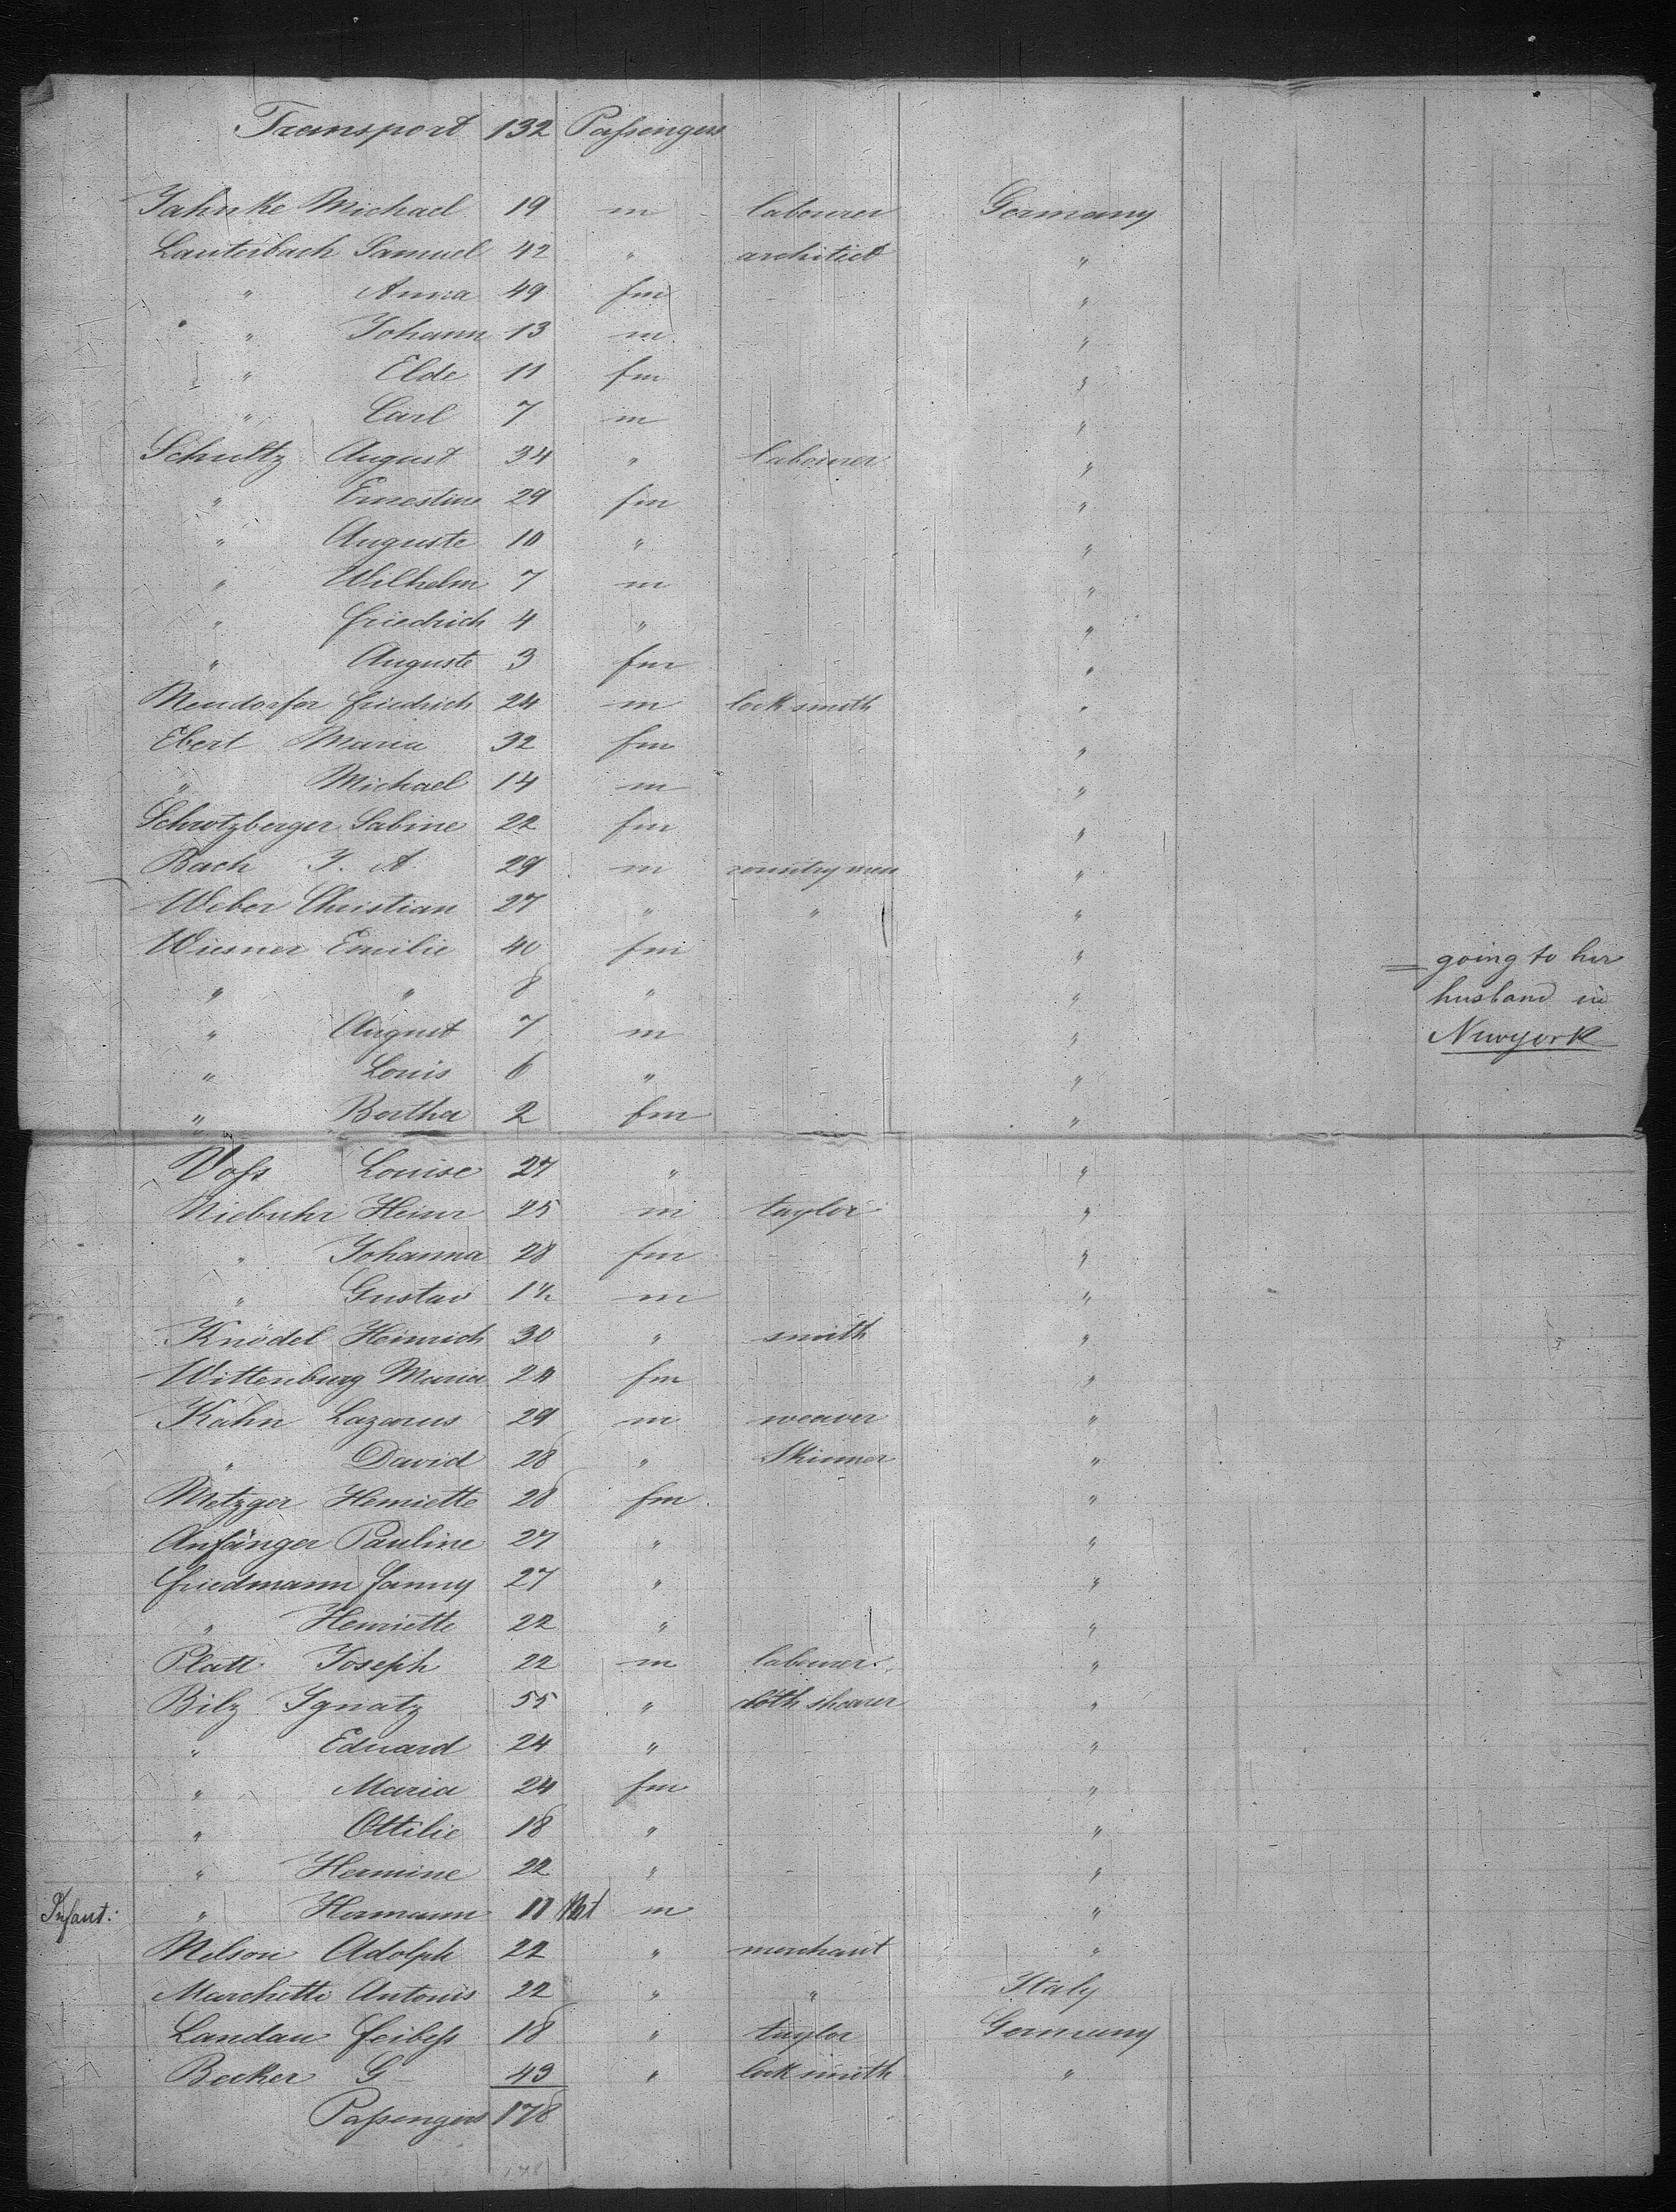 Transport 132 Paſsengers
Jahnke Michael 19 m labourer Germany
Lauterbach Samuel 42 " architect "
" Anna 49 fm "
" Johann 13 m "
" Elde 11 fm "
" Carl 7 m "
Schultz August 34 " labourer "
" Ernestine 29 fm "
" Auguste 10 " "
" Wilhelm 7 m "
" Friedrich 4 " "
" Auguste 3 fm "
Neudorfer Friedrich 24 m lock smith "
Ebert Maria 32 fm "
" Michael 14 m "
Schrotzberger Sabine 22 fm "
Bach J. A. 29 m country men "
Weber Christian 27 " " "
Wiesner Emilie 40 fm " = going to her
" " 8 " " husband in
" August 7 m " Newyork
" Louis 6 " "
" Bertha 2 fm "
Voſs Louise 27 " "
Niebuhr Heinr 25 m taylor "
" Johanna 28 fm "
" Gustav 1½ m "
Knödel Heinrich 30 " smith "
Wittenburg Maria fm "
Kahn Lazarus 29 m weaver "
" David 28 " Skinner "
Metzger Henriette 28 fm "
Anfänger Pauline 27 " "
Friedmann Fanny 27 " "
" Henriette 22 " "
Platt Joseph 22 m labourer "
Bilz Ignatz 55 " cloth shearer "
" Eduard 24 " "
" Maria 24 fm "
" Ottilie 18 " "
" Hermine 22 " "
Infant: " Hermann 11 m "
Nelson Adolph 22 " merchant "
Marchetti Antonis 22 " " Italy
Landau Feibeſs 18 " taylor Germany
Becker G 43 " lock smith "
Paſsengers 178
178